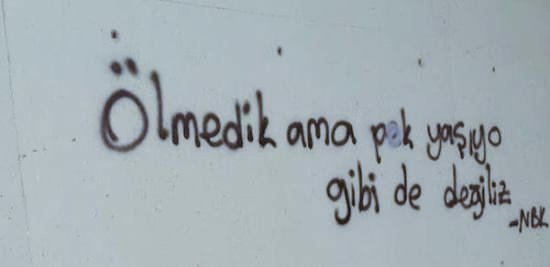 Ölmedik ama pek yaşıyo
gibi de değiliz
-NBK